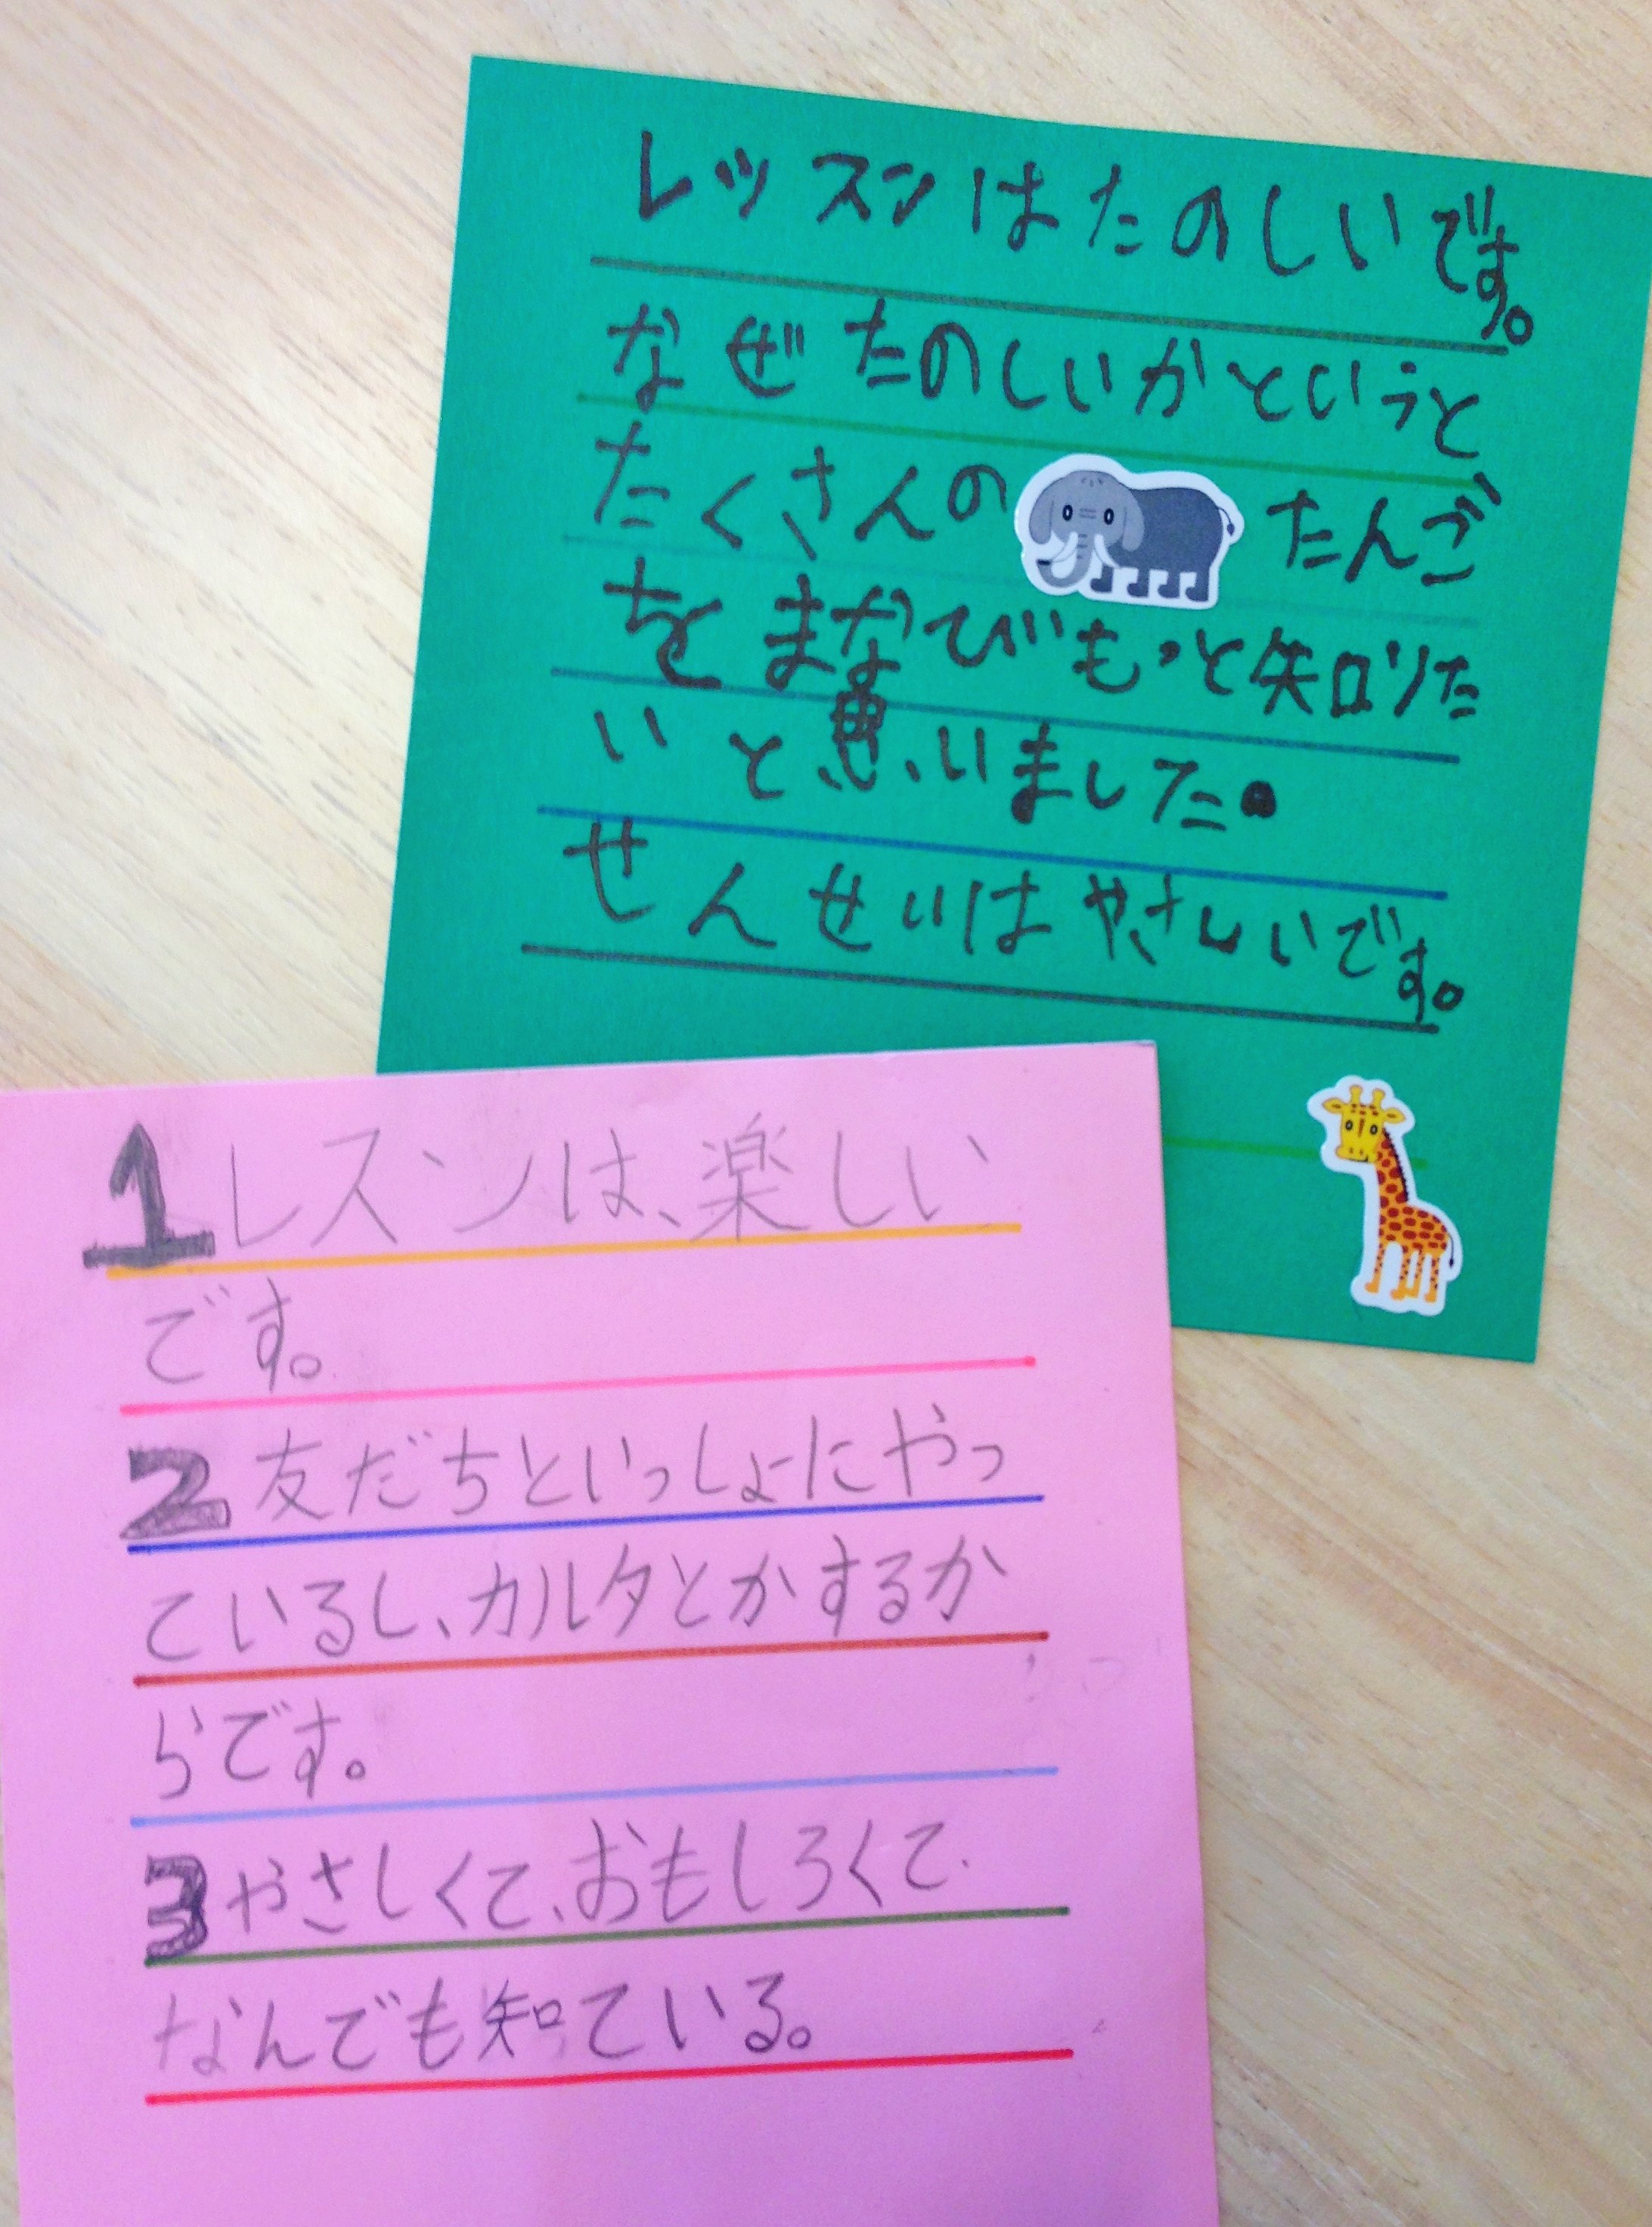 レッスンはたのしいです。
なぜたのしいかというと
たくさんの たんご
をまなびもっと知りた
いと思いました。
せんせいはやさしいです。
1 レスンは、楽しい
です。
2 友だちといっしょにやっ
ているし、カルタとかするか
らです。
3 やさしくて、おもしろくて
なんでも知っている。